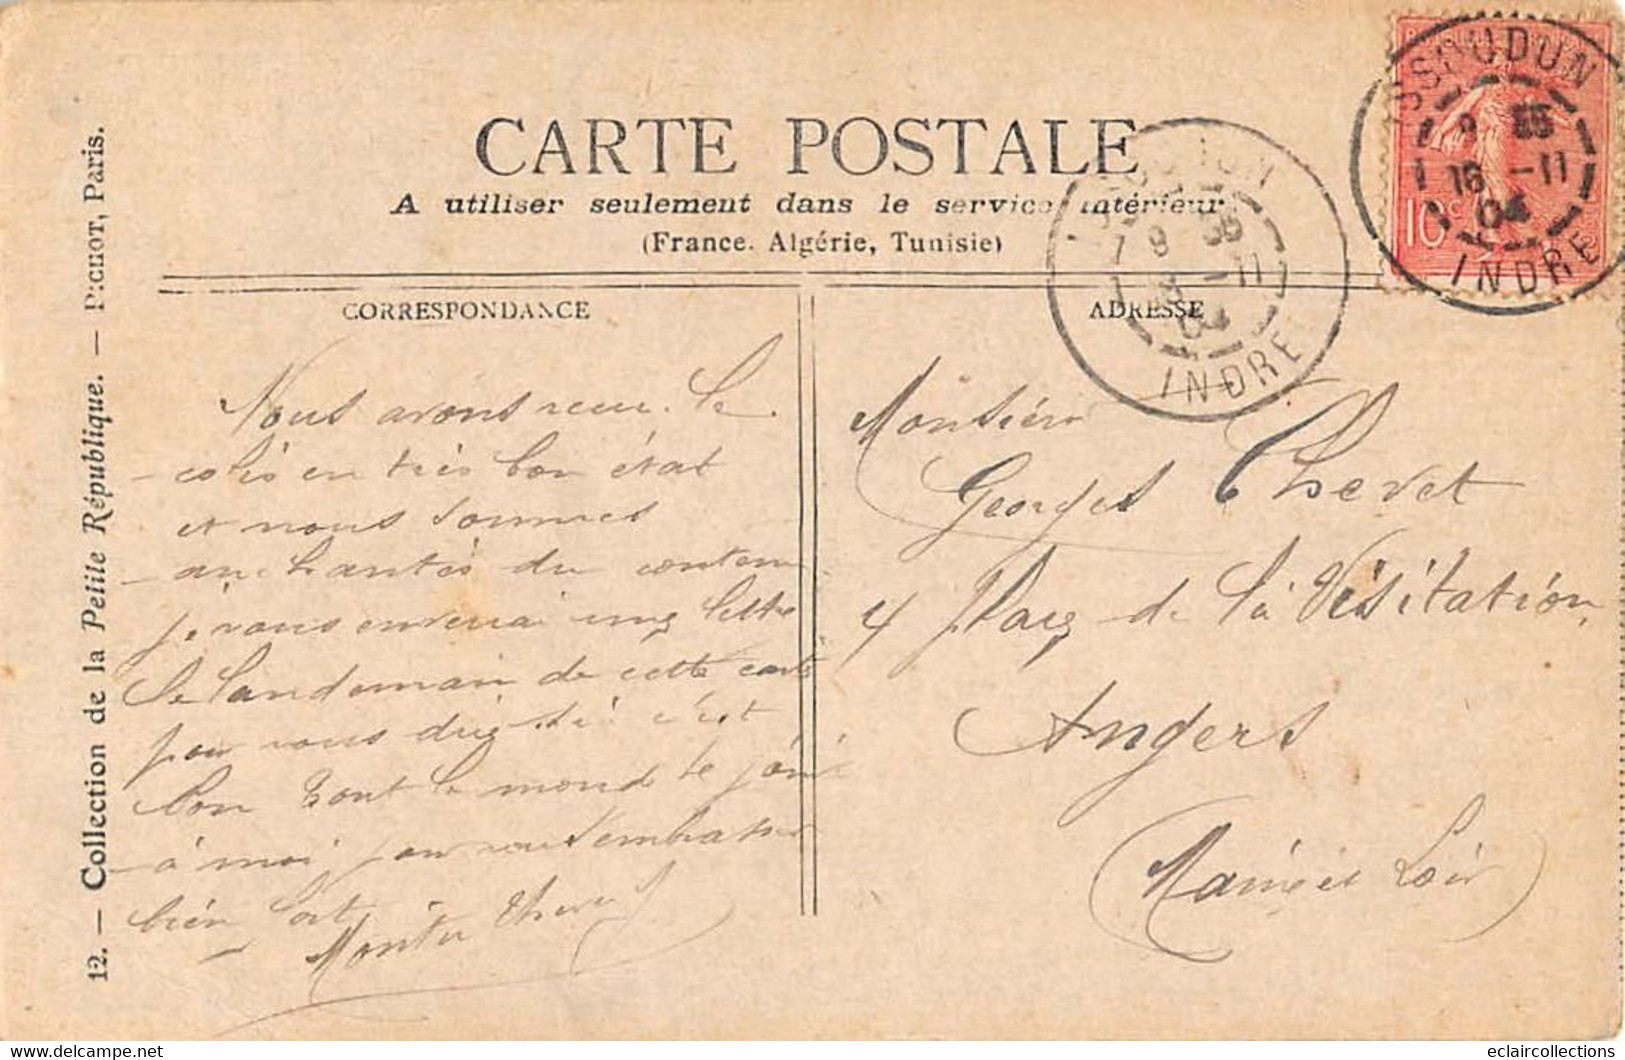 CARTE POSTALE
A utiliser seulement dans le service intérieur
(France. Algérie, Tunisie)
CORRESPONDANCE
Nous avons recu le
colis en très bon état
et nous sommes
anchantés du contenu
je vous enverai une lettre
le landemain de cette carte
pour vous dire si c'est
bon tout le monde se joint
à moi pour vous embrasser
bien fort
ADRESSE
Monsieur
Georges Chevet
4 Place de la Visitation
Angers
(Maine et Loir)
ISSOUDUN
9 35
16 -11
04
INDRE
10c
9 35
-11
04
INDRE
12. — Collection de la Petite République. — PICHOT, Paris.
eclaircollections